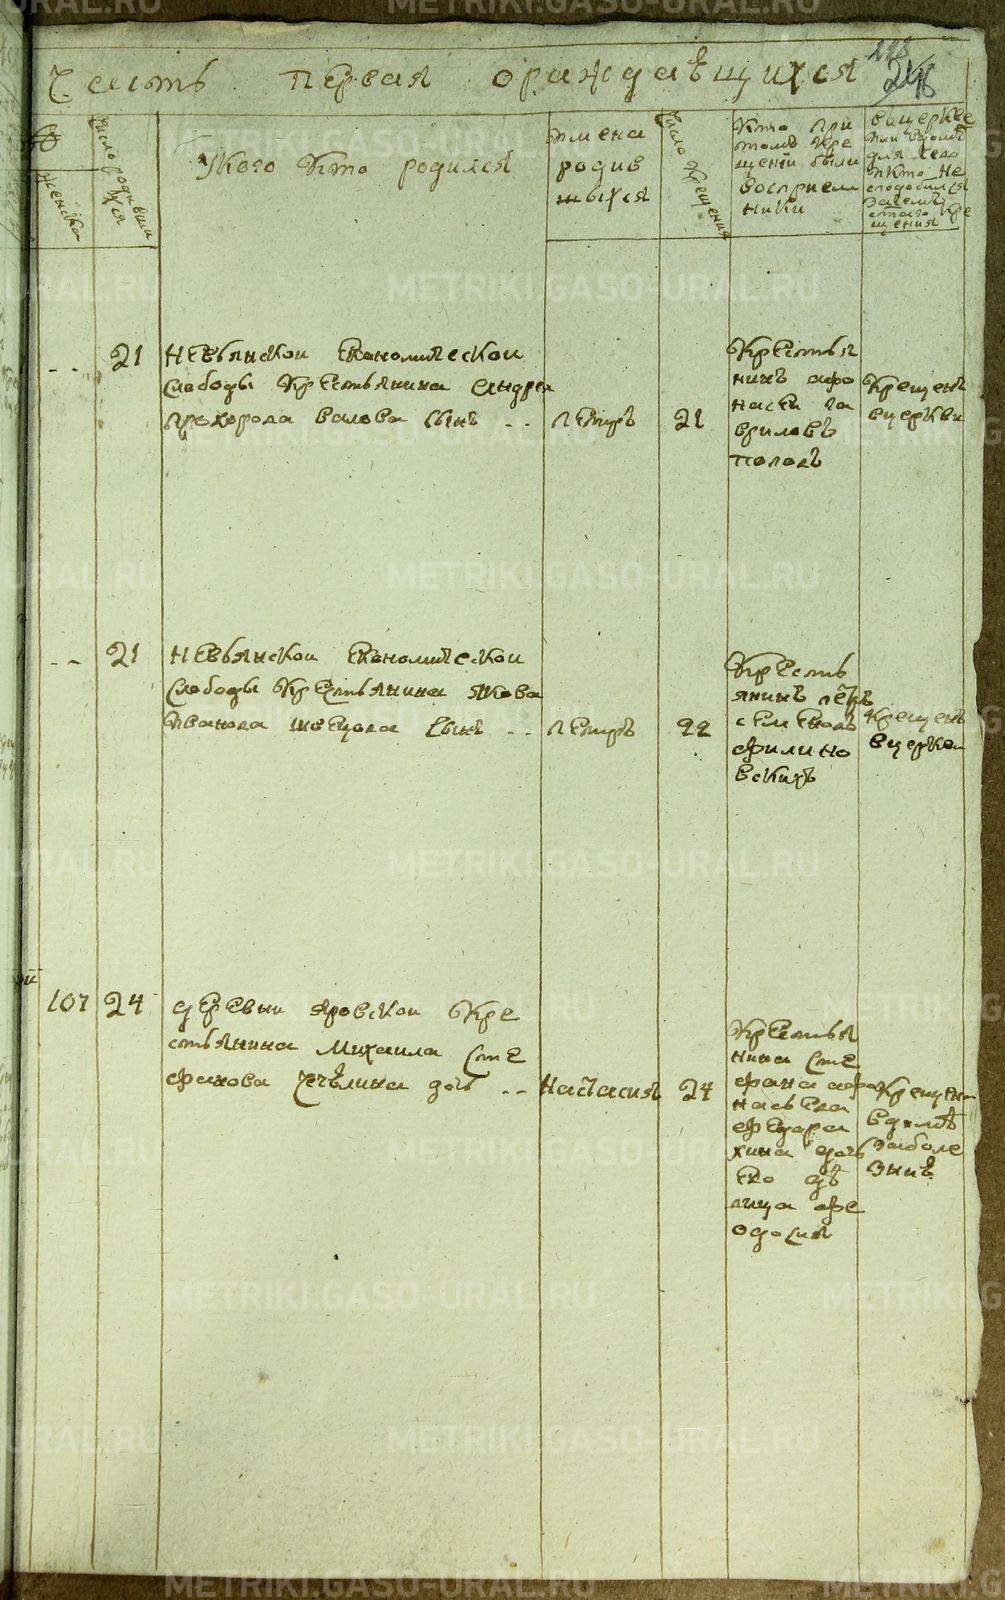 Часть первая ораждаѣщихся
248
женска
число родивших ся
У кого кто родился
Имена
родив
шыхся
число крещения
Кто при
томъ кре
щении были
восприем
ники
вцеркве
или вдомѣ
для чего
икто не
сподобился
зачемъ
стаго кре
щения
21
Невьянской Економической
слободы крестьянина Андрея
Прохорова валова сынъ
Петръ
21
Крестья
нинъ афо
насеи га
вриловъ
поповъ
Крещенъ
вцеркви
21
Невьянской Економической
слободы крестьянина Якова
Иванова Швецова сынъ
Петръ
22
Кресть
янинъ петръ
семеновъ
филино
вскихъ
Крещенъ
вцеркви
107 24
деревни Яровской Кре
стьянина Михаила Сте
фанова Чечѣлина дочь
Настасия
24
Крестья
нина Сте
фана афо
насьева
Федора
хина дочь
Ево дѣ
вица фе
одосия
Крещен
вдомѣ
заболе
зниѣ
METRIKI.GASO-URAL.RU